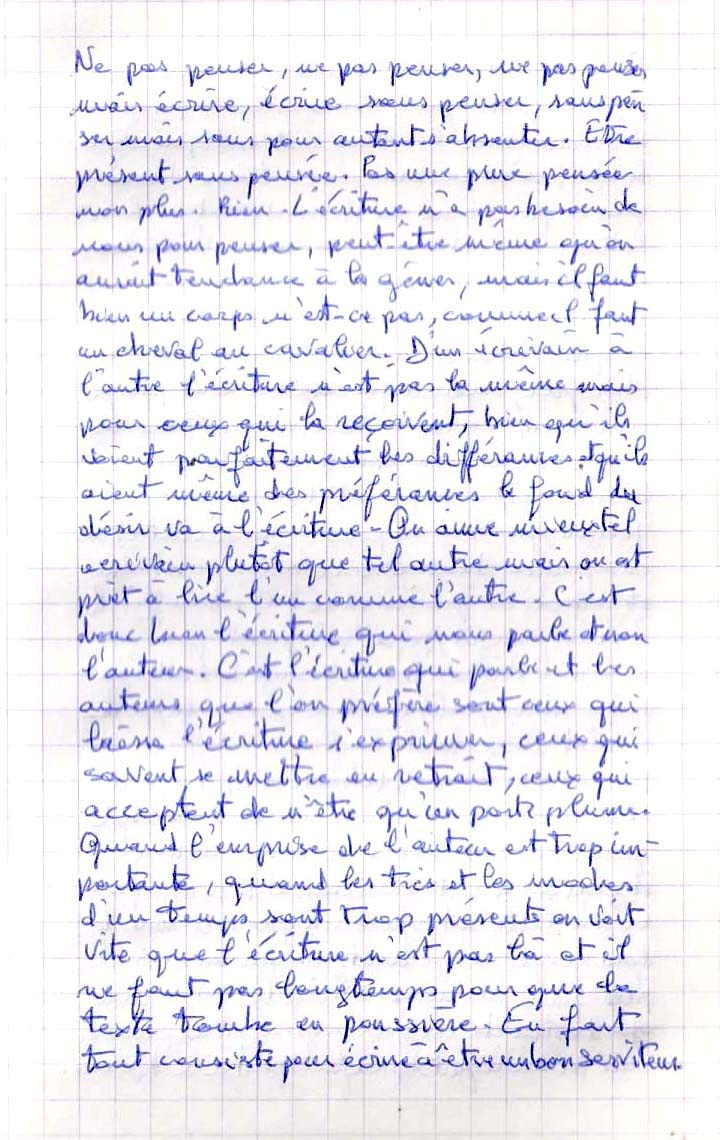 Ne pas penser, ne pas penser, ne pas penser
mais écrire, écrire sans penser, sans pen
ser mais sans pour autant s'absenter. Etre
présent sans pensée. Pas une pure pensée
non plus. Rien. L'écriture n'a pas besoin de
nous pour penser, peut-être même qu'on
aurait tendance à la gêner, mais il faut
bien un corps n'est-ce pas, comme il faut
un cheval au cavalier. D'un écrivain à
l'autre l'écriture n'est pas la même mais
pour ceux qui la reçoivent, bien qu'ils
voient parfaitement les différences et qu'ils
aient même des préférences le fond du
désir va à l'écriture - On aime mieux tel
écrivain plutôt que tel autre mais on est
prêt à lire l'un comme l'autre. C'est
donc bien l'écriture qui nous parle et non
l'auteur. C'est l'écriture qui parle et les
auteurs que l'on préfère sont ceux qui
laisse l'écriture s'exprimer, ceux qui
savent se mettre en retrait, ceux qui
acceptent de n'être qu'un porte plume.
Quand l'emprise de l'auteur est trop im-
portante, quand les tics et les modes
d'un temps sont trop présents on voit
vite que l'écriture n'est pas là et il
ne faut pas longtemps pour que le
texte tombe en poussière. En fait
tout consiste pour écrire à être un bon serviteur.